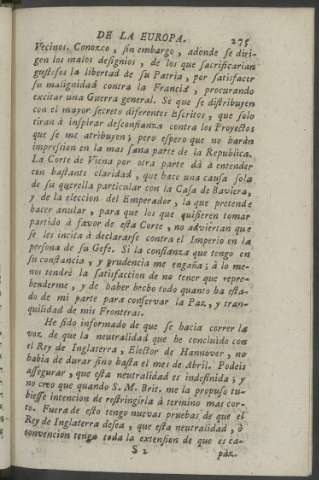 DE LA EUROPA. 275
Vecinos. Conozco, sin embargo, adonde se diri-
gen los malos designios, de los que sacrificarian
gustosos la libertad de su Patria, por satisfacer
su malignidad contra la Francia, procurando
excitar una Guerra general. Se que se distribuyen
con el mayor secreto diferentes Escritos, que solo
tiran à inspirar desconfianza contra los Proyectos
que se me atribuyen; pero espero que no harán
impression en la mas sana parte de la Republica.
La Corte de Viena por otra parte dà à entender
con bastante claridad, que hace una causa sola
de su querella particular con la Casa de Baviera,
y de la eleccion del Emperador, la que pretende
hacer anular, para que los que quisieren tomar
partido à favor de esta Corte, no adviertan que
se les incita à declararse contra el Imperio en la
persona de su Gefe. Si la confianza que tengo en
su constancia, y prudencia me engaña; à lo me-
nos tendré la satisfaccion de no tener que repre-
henderme, y de haber hecho todo quanto ha esta-
do de mi parte para conservar la Paz, y tran-
quilidad de mis Fronteras.
He sido informado de que se hacia correr la
voz de que la neutralidad que he concluido con
el Rey de Inglaterra, Elector de Hannover, no
habia de durar sino hasta el mes de Abril. Podeis
assegurar, que esta neutralidad es indefinida; y
no creo que quando S. M. Brit. me la propuso tu-
biesse intencion de restringirla à termino mas cor-
to. Fuera de esto tengo nuevas pruebas de que el
Rey de Inglaterra desea, que esta neutralidad, ò
convencion tenga toda la extension de que es ca-
S 2 páz.